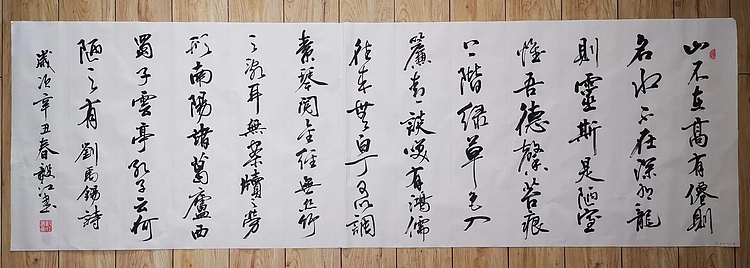 山不在高有僊則
名水不在深有龍
則靈斯是陋室
惟吾德馨苔痕
上階綠草色入
簾青談笑有鴻儒
往來無白丁可以調
素琴閱金經無絲竹
之亂耳無案牘之勞
形南陽諸葛廬西
蜀子雲亭孔子云何
陋之有 劉禹錫詩
歲次辛丑春毅江書